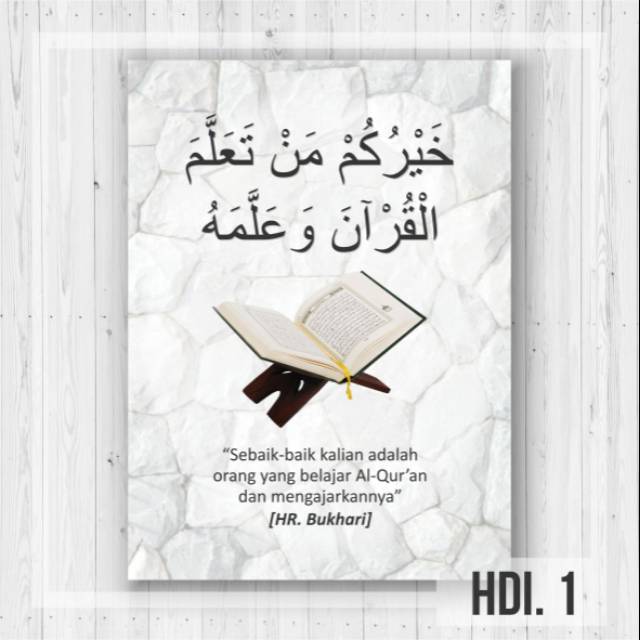 خَيْرُكُمْ مَنْ تَعَلَّمَ
الْقُرْآنَ وَعَلَّمَهُ
“Sebaik-baik kalian adalah
orang yang belajar Al-Qur’an
dan mengajarkannya”
[HR. Bukhari]
HDI. 1